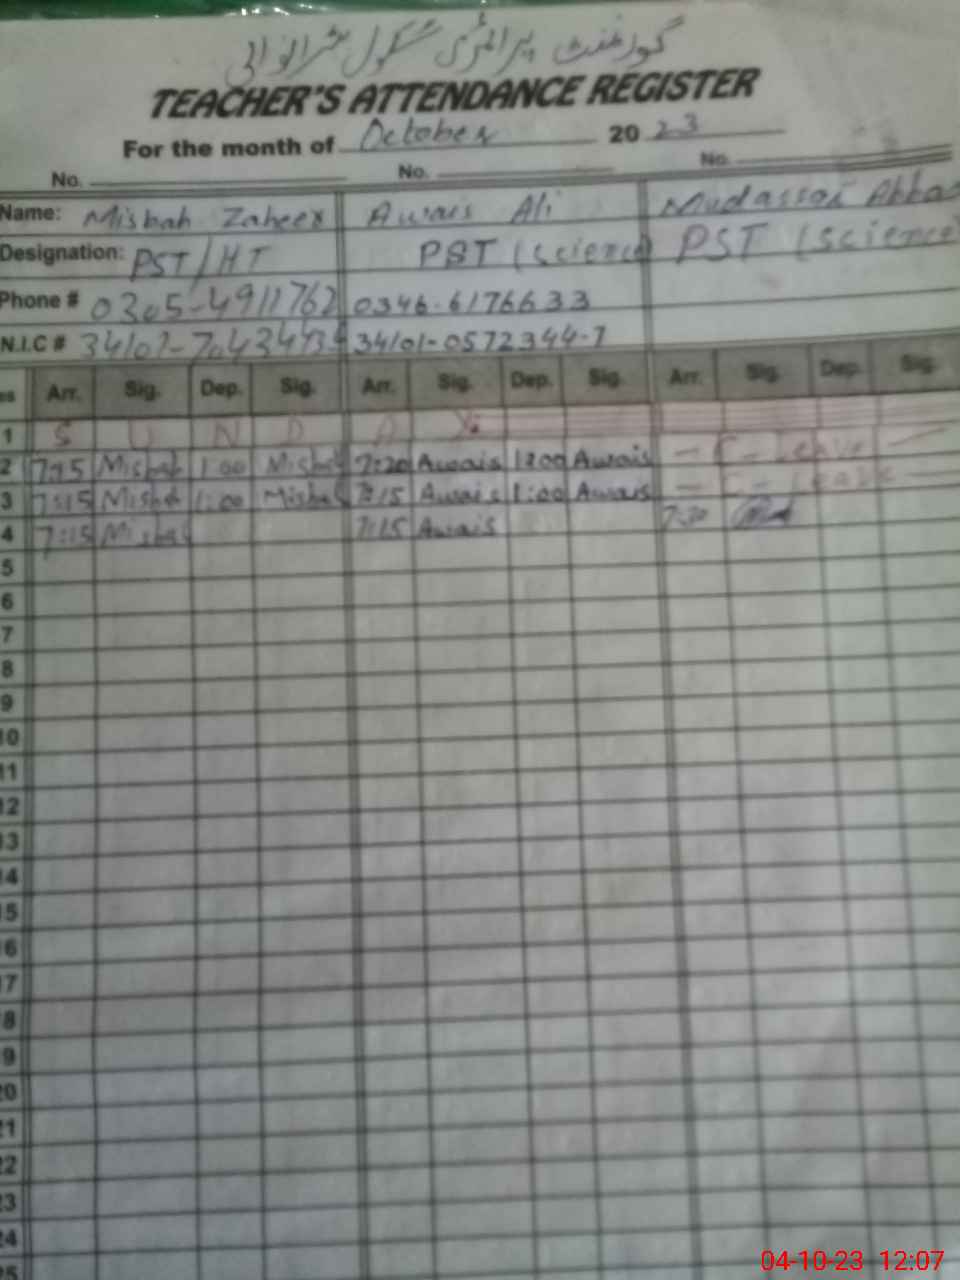 گورنمنٹ پرائمری سکول
TEACHER'S ATTENDANCE REGISTER
For the month of October 2023
No. No. No.
Name: Misbah Zaheer Awais Ali Mudassar Abbas
Designation: PST/HT PST (Science) PST (Science)
Phone # 0305-4911762 0346-6176633
N.I.C # 34101-0572344-7
es Arr. Sig. Dep. Sig. Arr. Sig. Dep. Sig. Arr. Sig. Dep. Sig.
1 S U N D A Y
2 7:15 Misbah 1:00 Misbah 7:20 Awais 1:00 Awais - C - Leave -
3 7:15 Misbah 1:00 Misbah 7:15 Awais 1:00 Awais - C - Leave -
4 7:15 Misbah 7:15 Awais 7:20
5
6
7
8
9
10
11
12
13
14
15
16
17
18
19
20
21
22
23
24
25
04-10-23 12:07